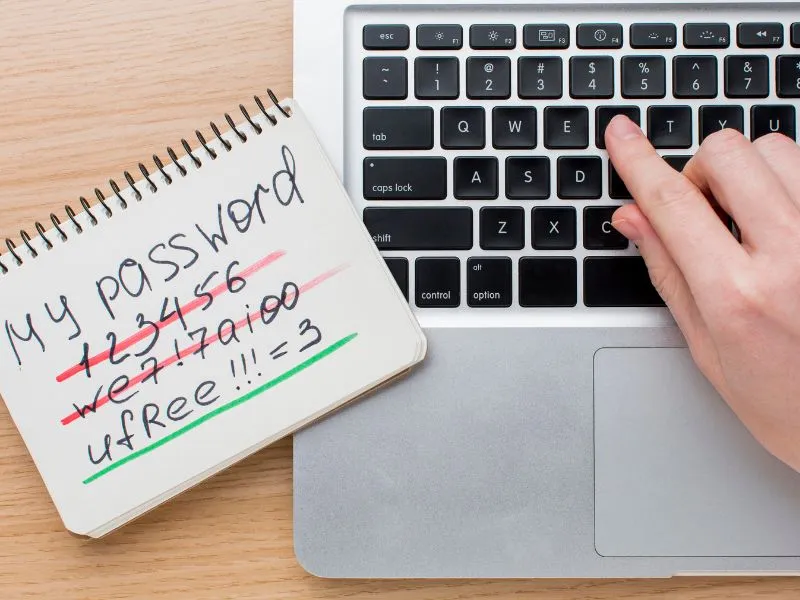 My password
123456
we7!7aioo
ufRee!!!=3
esc F1 F2 F3 F4 F5 F6 F7
~ ` ! 1 @ 2 # 3 $ 4 % 5 ^ 6 & 7 * 8
tab Q W E T Y U
caps lock A S D
shift Z X C
control alt option